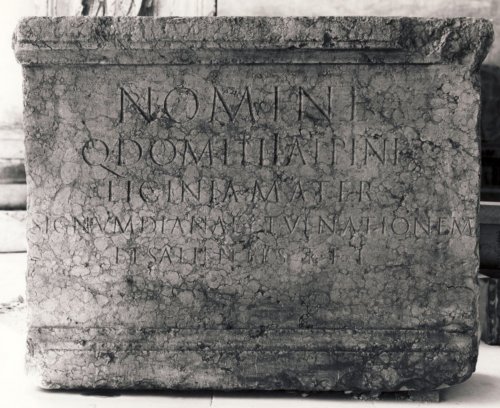 NOMINI
Q DOMITII ALPINI
LICINIA MATER
SIGNVM DIANAE ET VENATIONEM
ET SALIENTES T F I